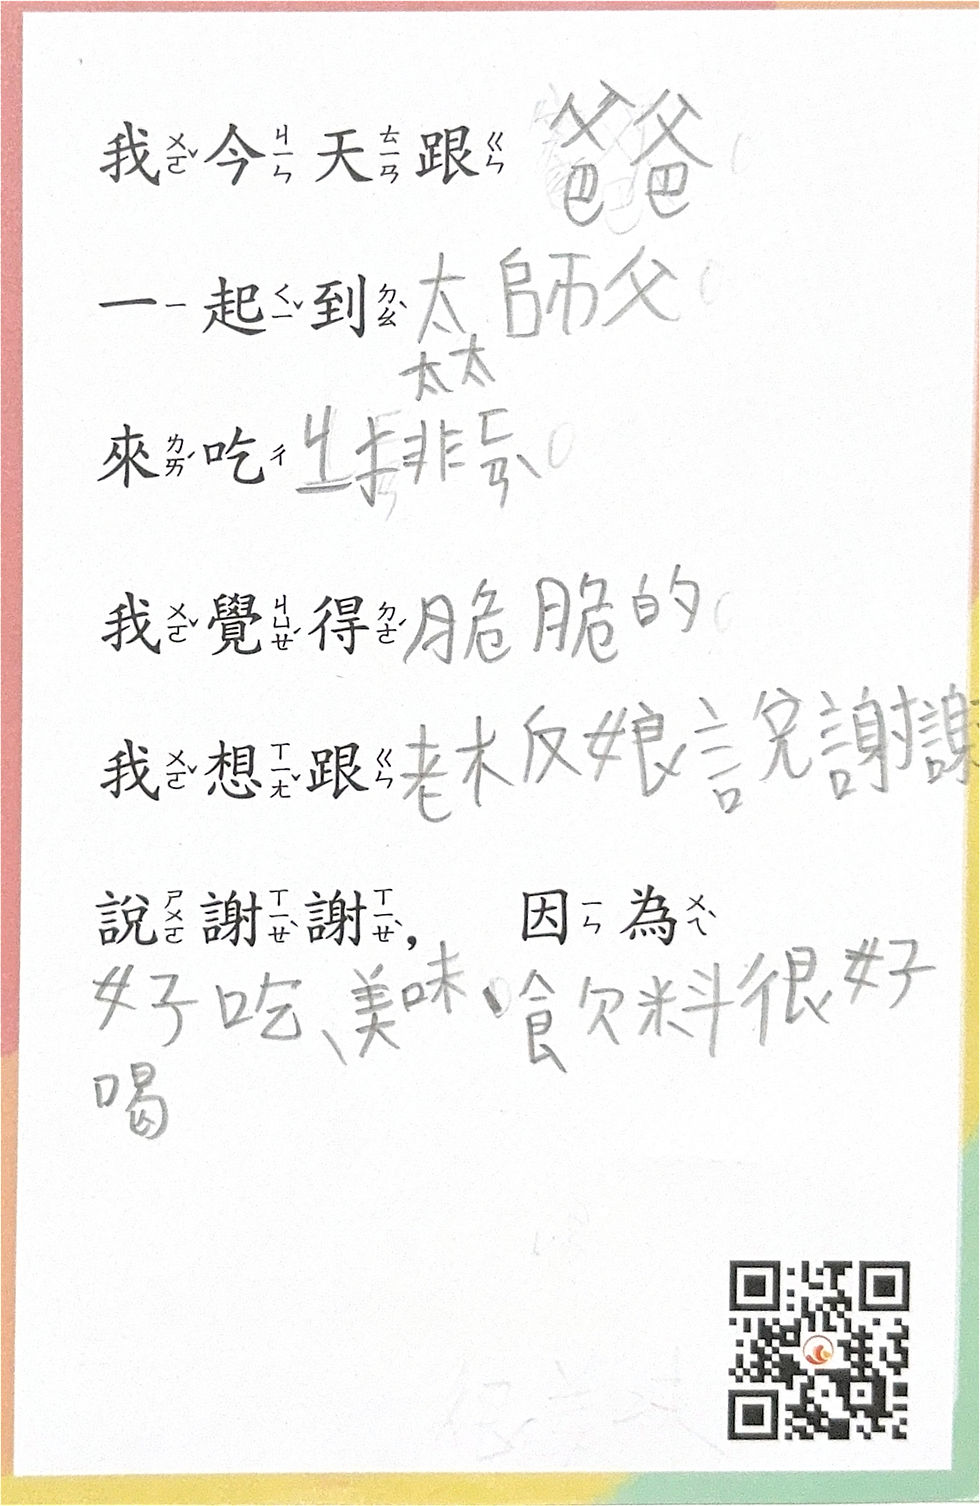 我ㄨㄛˇ今ㄐㄧㄣ天ㄊㄧㄢ跟ㄍㄣ 爸爸
一ㄧ起ㄑㄧˇ到ㄉㄠˋ太師父
太太
來ㄌㄞˊ吃ㄔ 排ㄈㄢˋ
我ㄨㄛˇ覺ㄐㄩㄝˊ得ㄉㄜˊ脆脆的
我ㄨㄛˇ想ㄒㄧㄤˇ跟ㄍㄣ老板娘說謝謝
說ㄕㄨㄛ謝ㄒㄧㄝˋ謝ㄒㄧㄝˋ, 因ㄧㄣ為ㄨㄟˋ
好吃、美味、飲料很好
喝